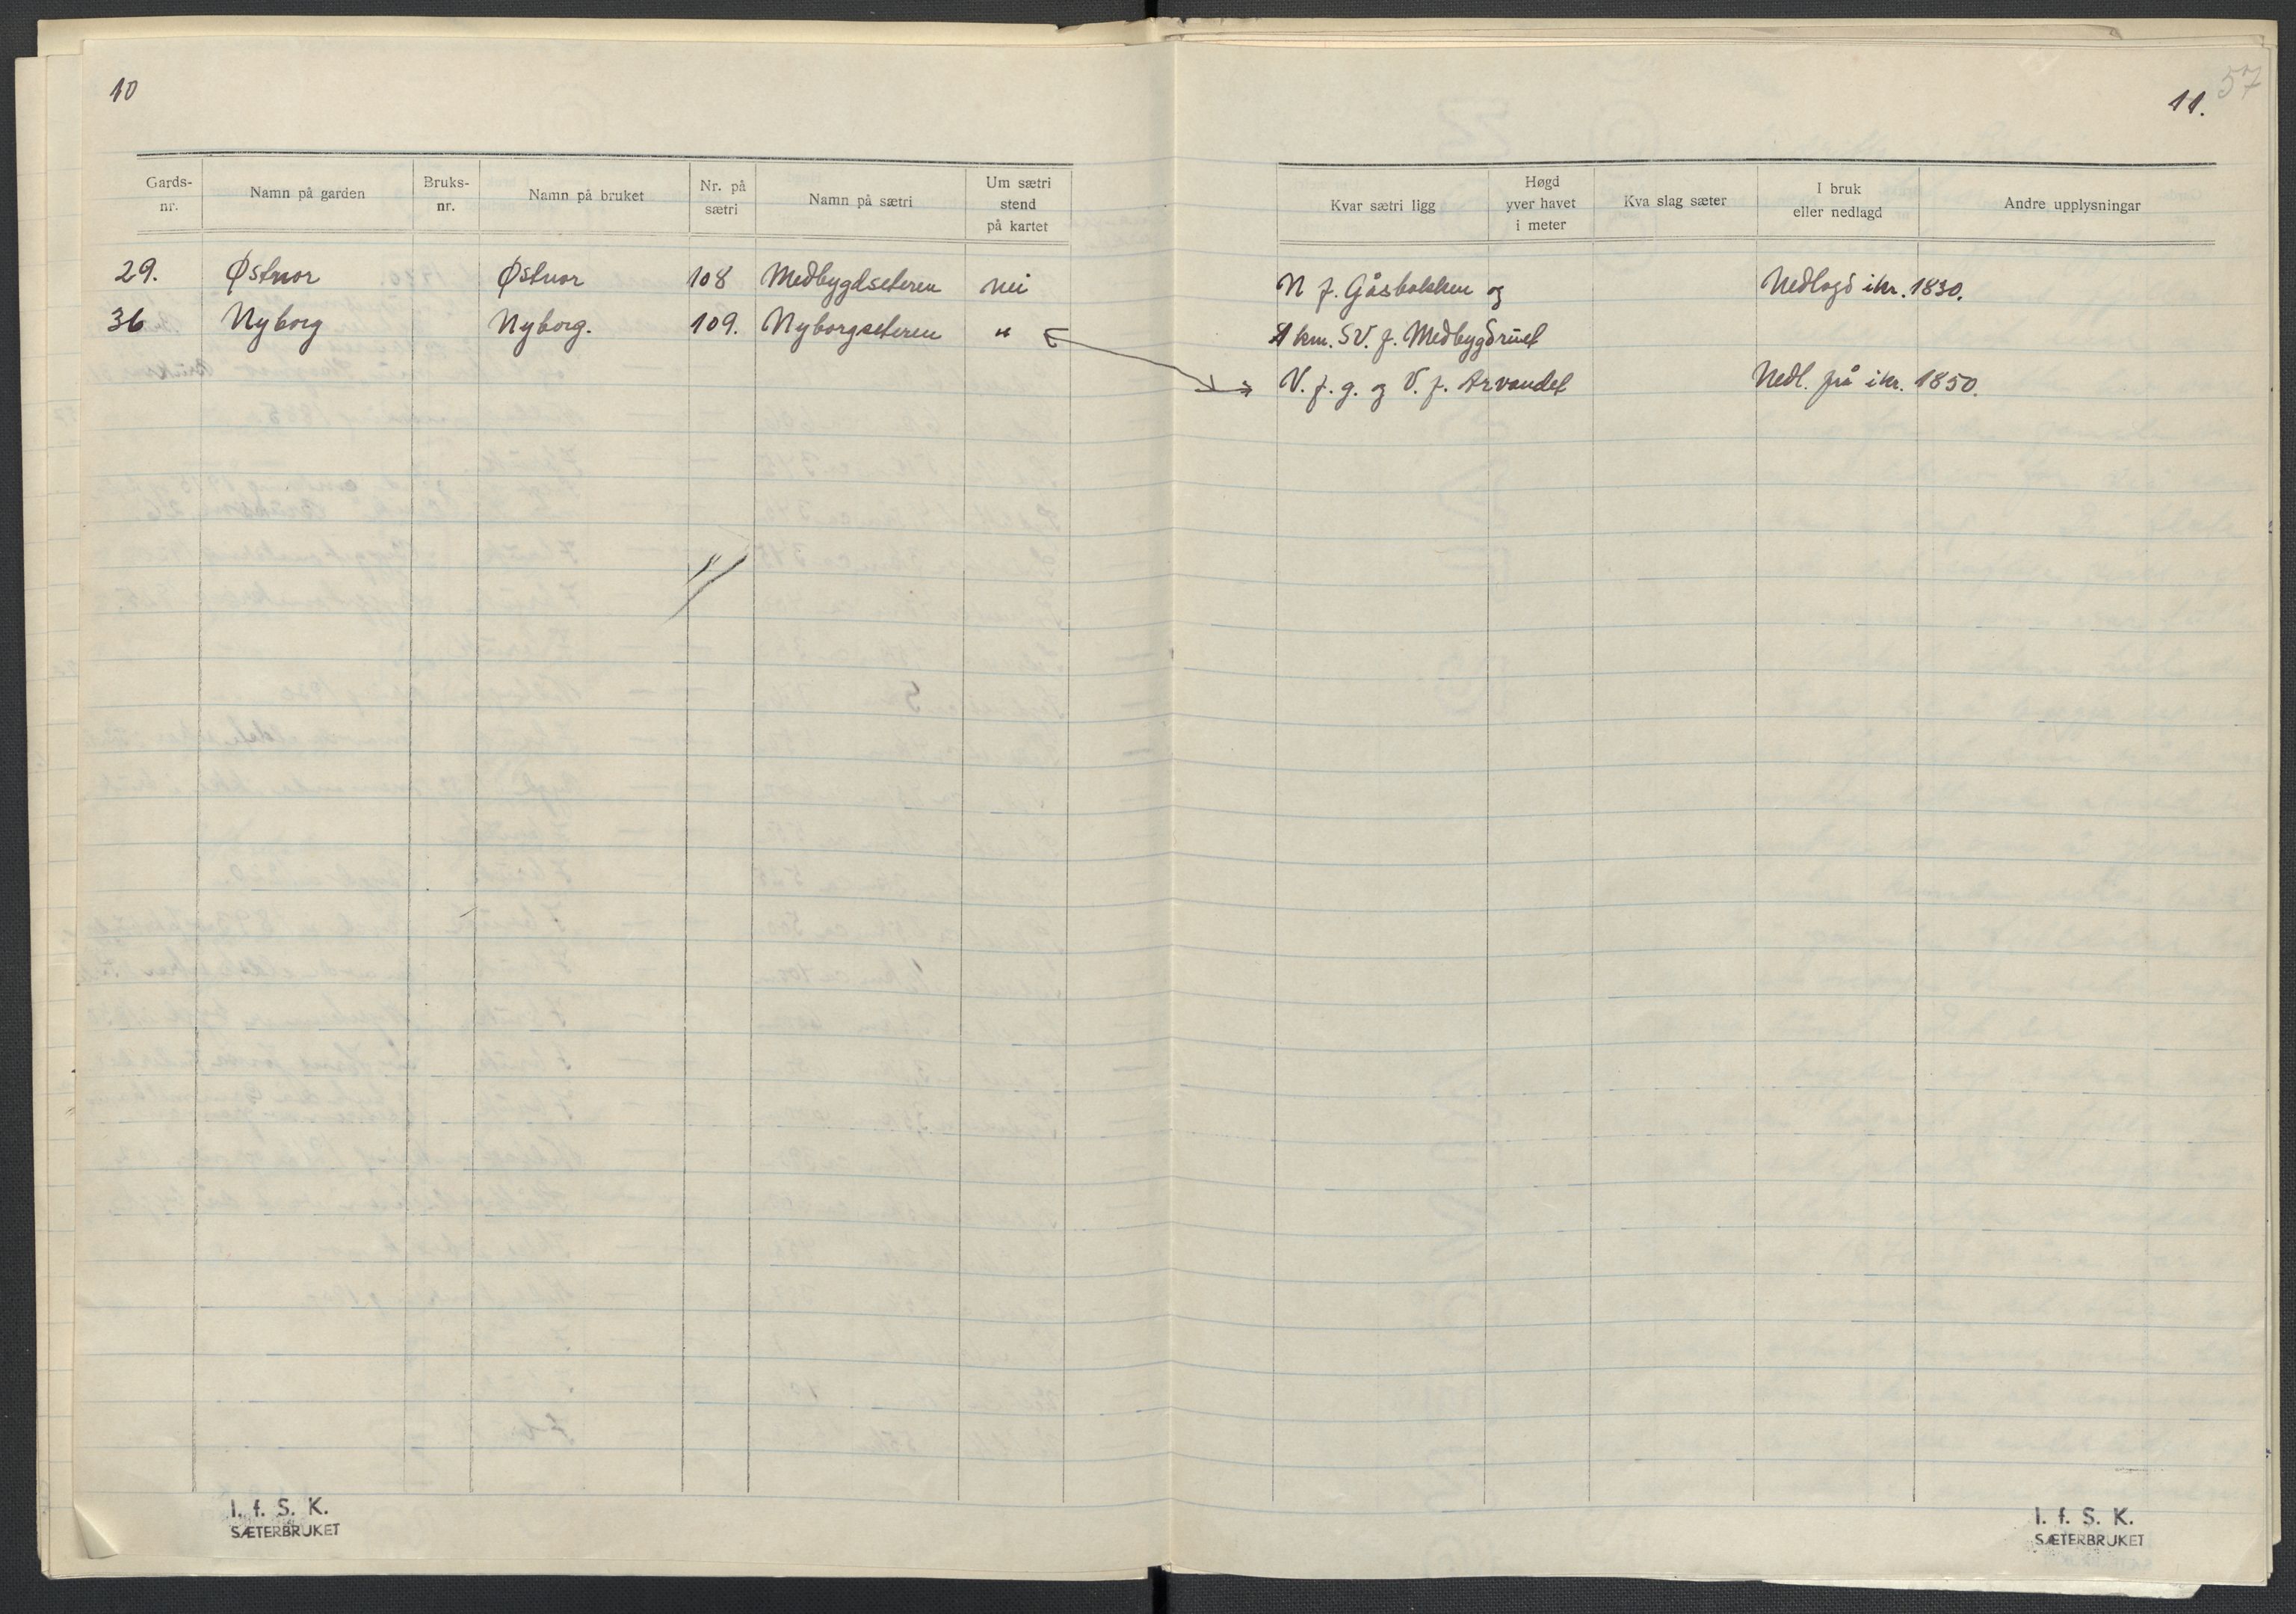 10
Gards-nr. Namn på garden Bruks-nr. Namn på bruket Nr. på sætri Namn på sætri Um sætri stend på kartet
29. Østnor Østnor 108 Medbygdseteren nei
36 Nyborg Nyborg. 109. Nyborgseteren "
I. f. S. K.
SÆTERBRUKET
57
11.
Kvar sætri ligg Høgd yver havet i meter Kva slag sæter I bruk eller nedlagd Andre upplysningar
N f. Gåsbakken og Nedlagd ikr. 1830.
1 km. SV. f. Medbygdruet
V. f. g. og V. f. Arvandet Nedl. frå ikr. 1850.
I. f. S. K.
SÆTERBRUKET